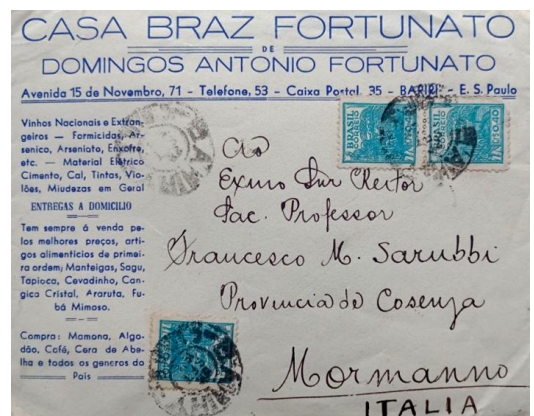 CASA BRAZ FORTUNATO
DE
DOMINGOS ANTONIO FORTUNATO
Avenida 15 de Novembro, 71 - Telefone, 53 - Caixa Postal, 35 - BARIRI - E. S. Paulo
Vinhos Nacionais e Extran-
geiros — Formicidas, Ar-
senico, Arseniato, Enxofre,
etc. — Material Elétrico
Cimento, Cal, Tintas, Vio-
lões, Miudezas em Geral
ENTREGAS A DOMICILIO
Tem sempre á venda pe-
los melhores preços, arti-
gos alimenticios de primei-
ra ordem; Manteigas, Sagu,
Tapioca, Cevadinho, Can-
gica Cristal, Araruta, Fu-
bá Mimoso.
Compra: Mamona, Algo-
dão, Café, Cera de Abe-
lha e todos os generos do
País
BRASIL
CORREIO
0,40
Ao
Exmo Snr Reitor
Sac. Professor
Francesco M. Sarubbi
Provincia de Cosenza
Mormanno
ITALIA